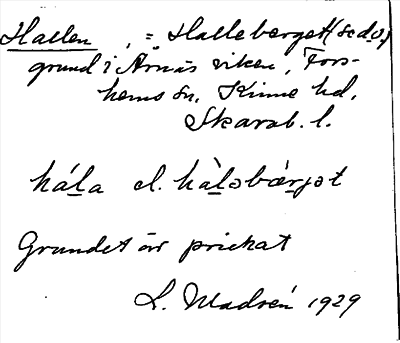 Hallen, = Halleberget (se d.o.)
grund i Årnäs viken, Fors-
hems sn, Kinne hd,
Skarab. l.
hála el. hàlabærjət
Grundet är prickat
L. Madsén 1929